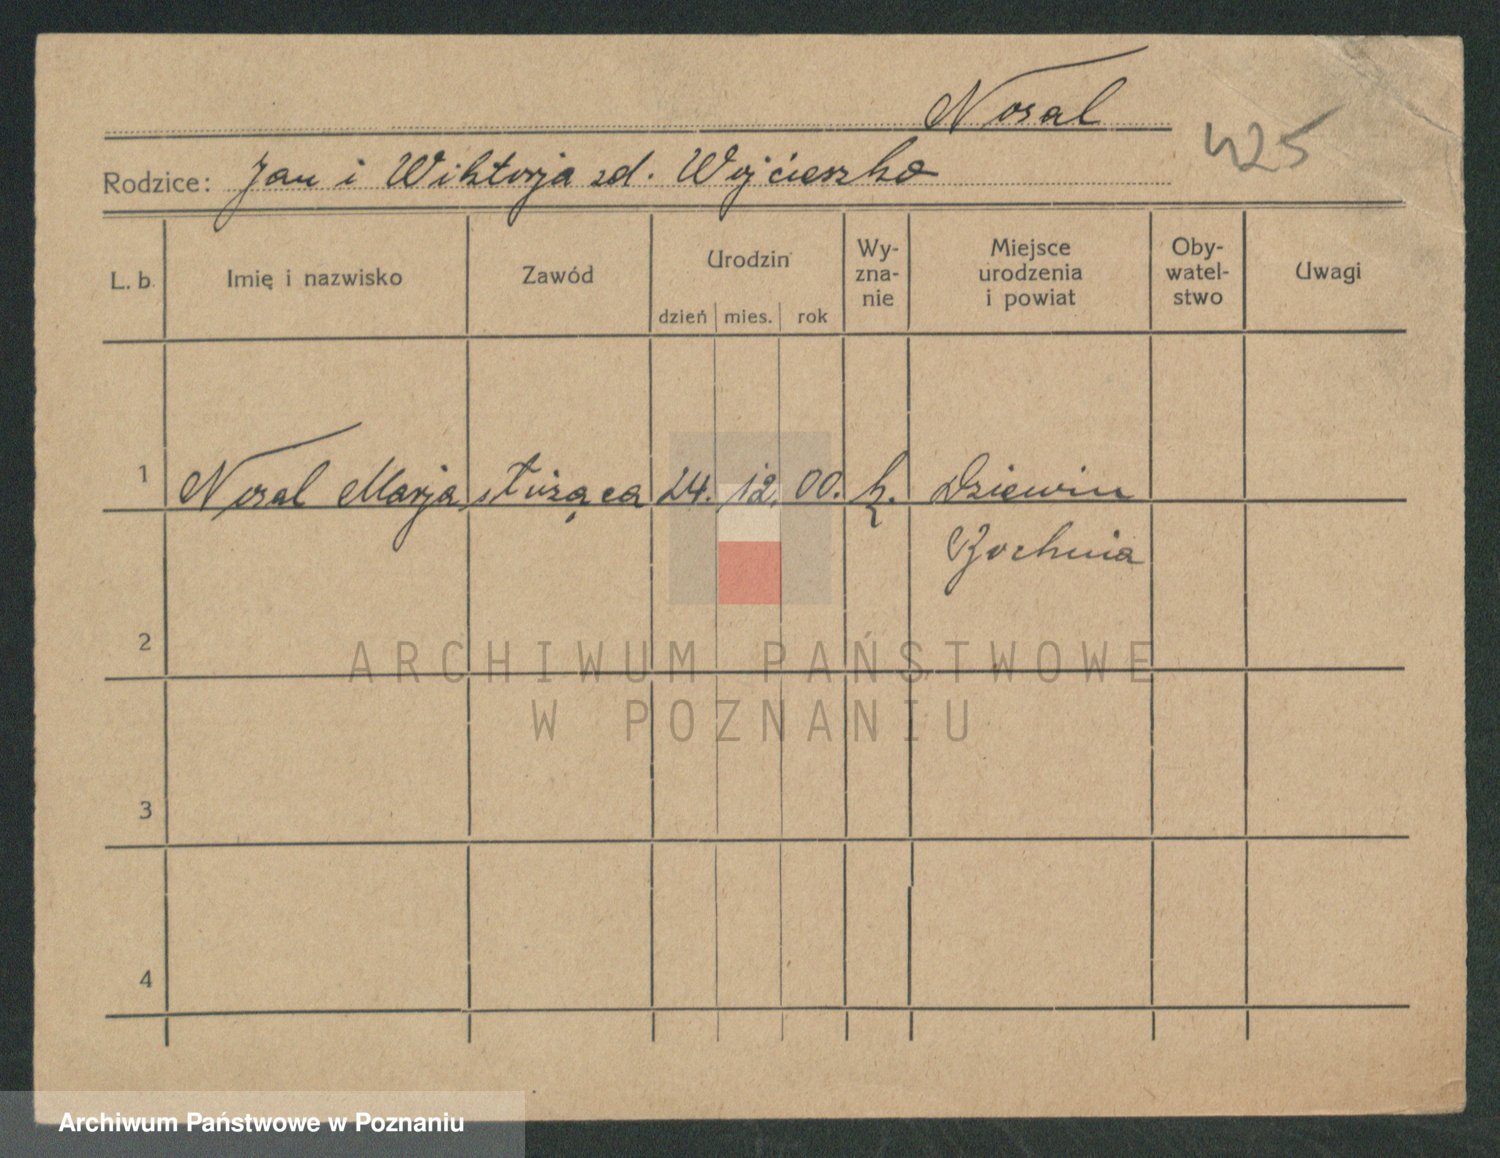 Nosal
425
Rodzice: Jan i Wiktorja zd. Wojcieszko
L. b. Imię i nazwisko Zawód Urodzin dzień mies. rok Wy-zna-nie Miejsce urodzenia i powiat Oby-watel-stwo Uwagi
1 Nosal Marja służąca 24. 12. 00. k. Dziewin
Bochnia
2
ARCHIWUM PAŃSTWOWE
W POZNANIU
3
4
Archiwum Państwowe w Poznaniu